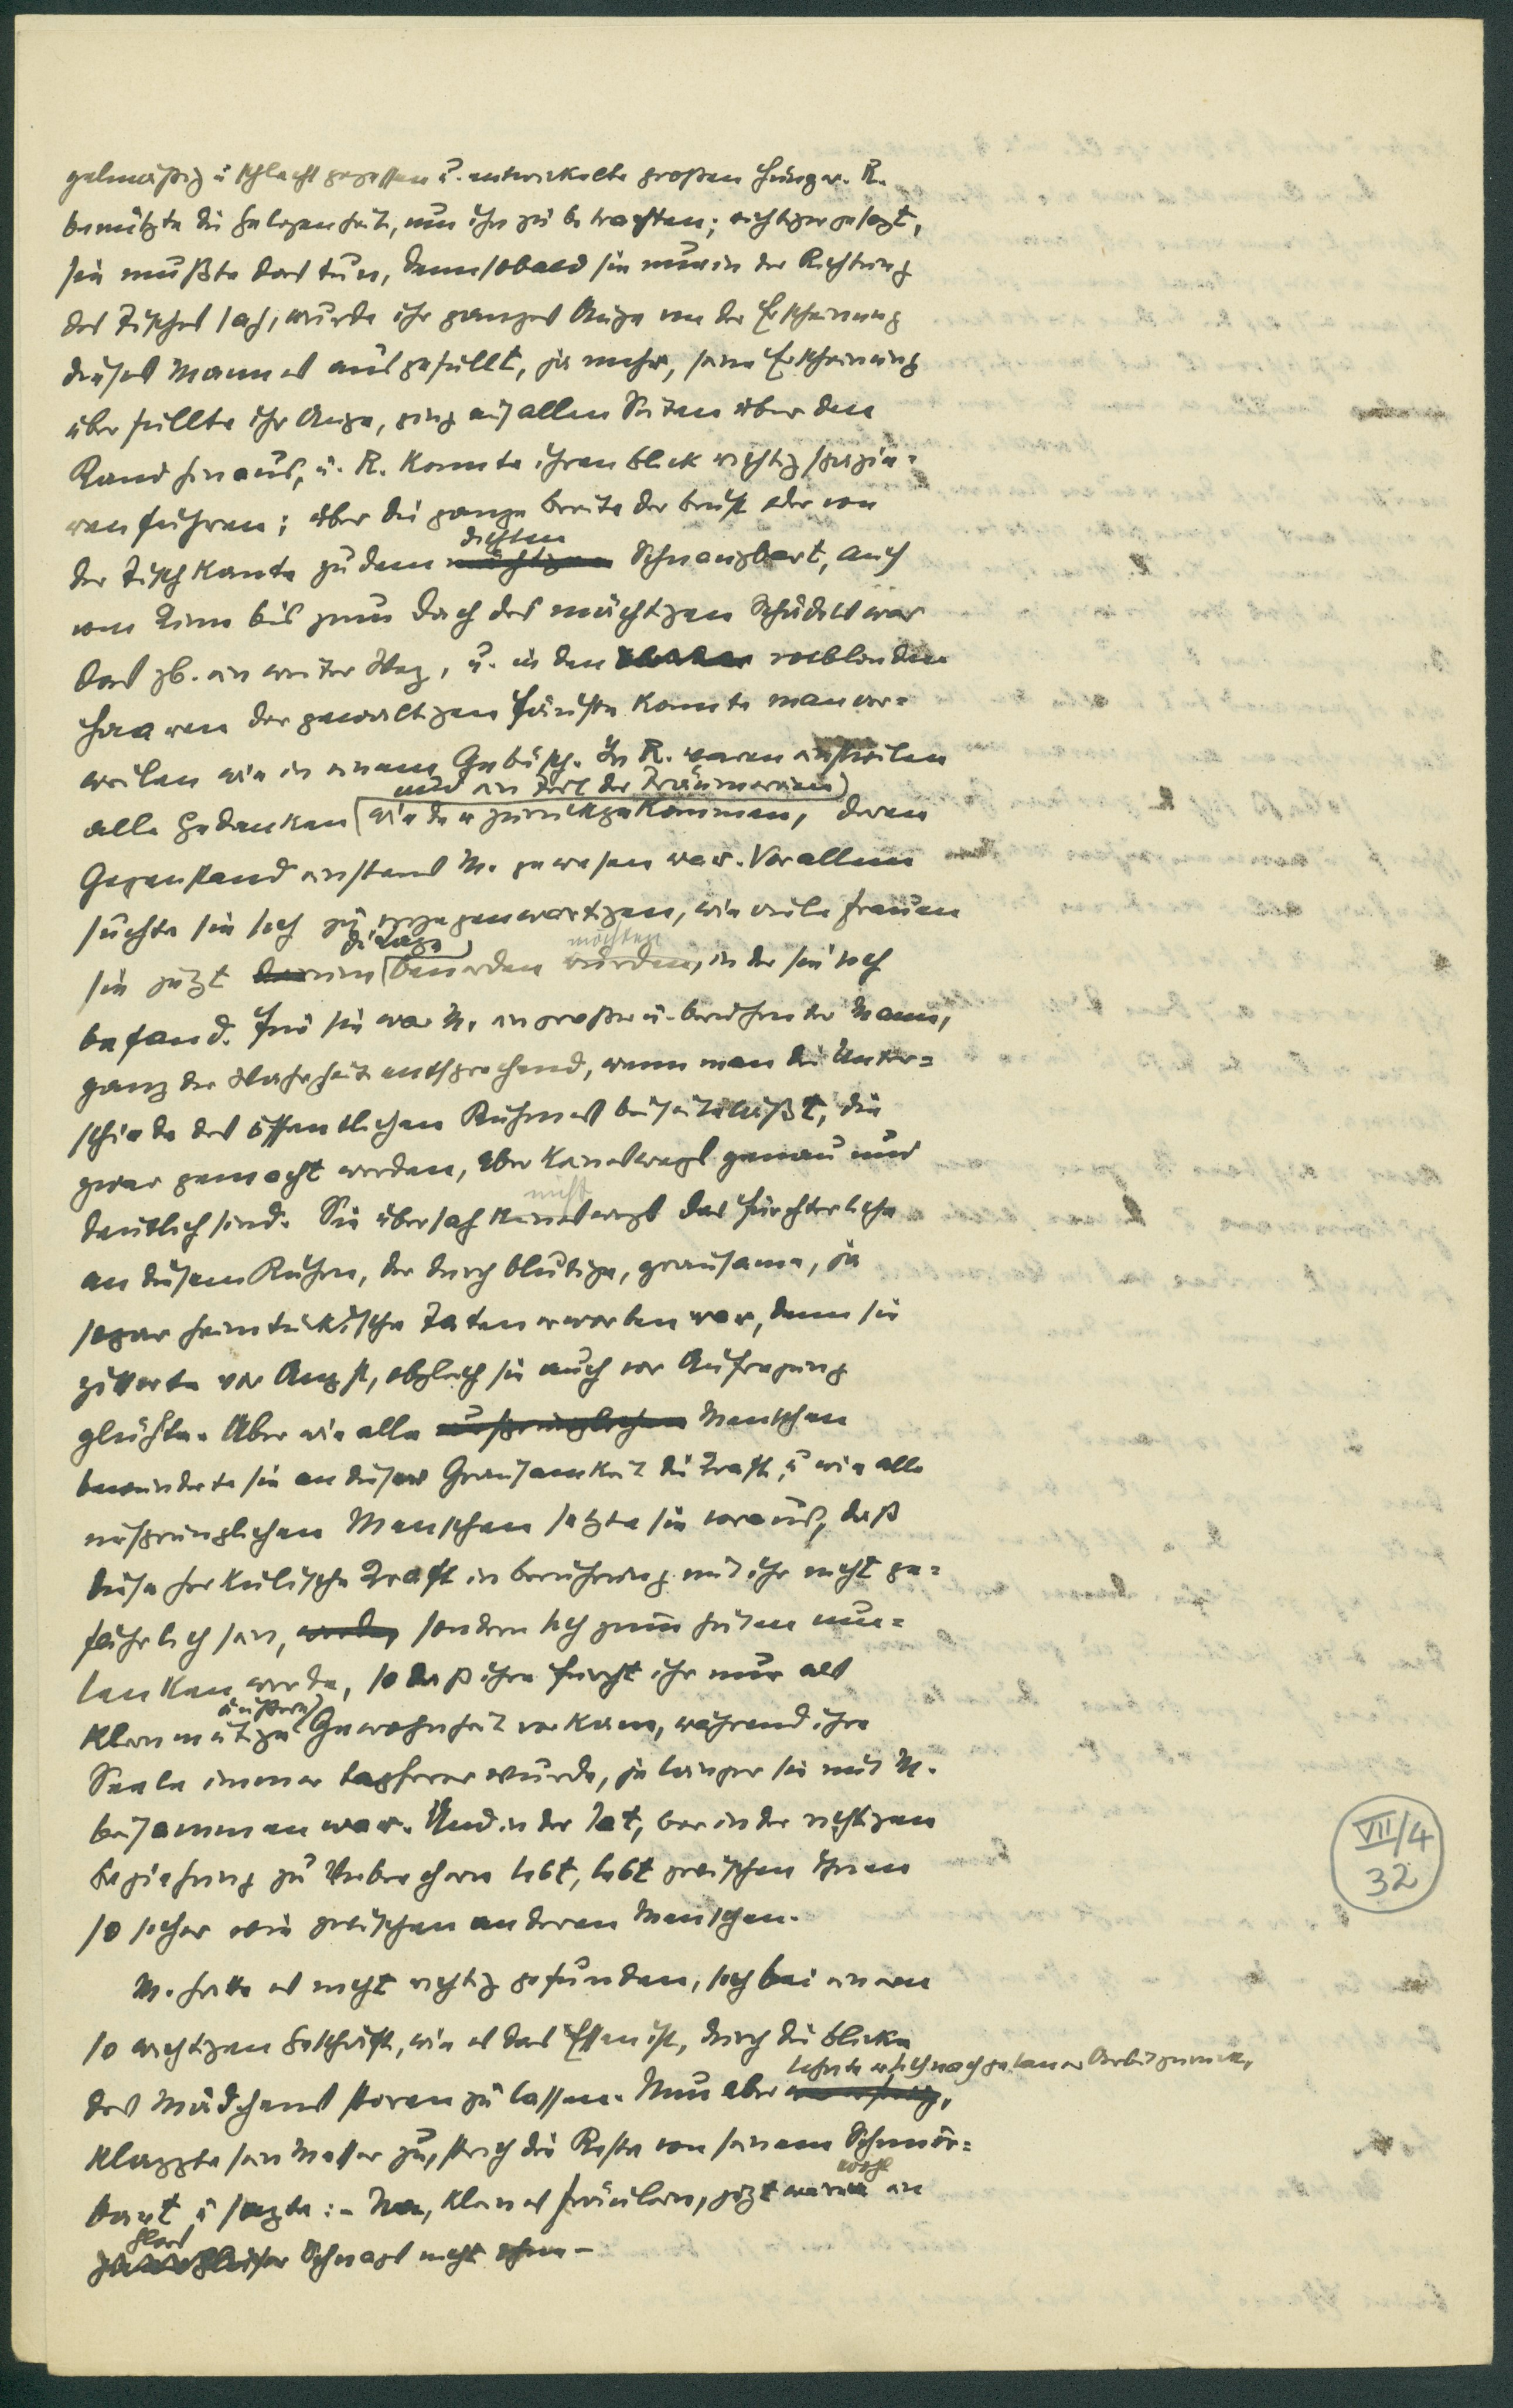 gelmäßig u schlecht gegessen u. entwickelte großen Hunger. R.
benützte die Gelegenheit, um ihn zu betrachten; richtiger gesagt,
sie mußte das tun, denn sobald sie nur in der Richtung
des Tisches sah, wurde ihr ganzes Auge von der Erscheinung
dieses Mannes ausgefüllt, ja mehr, seine Erscheinung
überfüllte ihr Auge, ging auf allen Seiten über den
Rand hinaus, u. R. konnte ihren Blick richtig spazie-
ren führen; über die ganze Breite der Brust oder von
dichten
der Tischkante zu dem mächtigen Schnauzbart, auch
vom Kinn bis zum Dach des mächtigen Schädels war
das zb. ein weiter Weg, u. in den rotblonden
Haaren der gewaltigen Fäuste konnte man ver-
weilen wie in einem Gebüsch. In R. waren einstweilen
und ein Teil der Träumereien
alle Gedanken wieder zurückgekommen, deren
Gegenstand einstens M. gewesen war. Vor allem
suchte sie sich zu vergegenwärtigen, wie viele Frauen
die Lage möchten
sie jetzt darum beneiden würden, in der sie sich
befand. Für sie war M. ein großer u. berühmter Mann,
ganz der Wahrheit entsprechend, wenn man die Unter-
schiede des öffentlichen Ruhmes beiseite läßt, die
zwar gemacht werden, aber keineswegs genau und
nicht
deutlich sind. Sie übersah keineswegs das Fürchterliche
an diesem Ruhm, der durch blutige, grausame, ja
sogar heimtückische Taten erworben war, denn sie
zitterte vor Angst, obgleich sie auch vor Aufregung
glühte. Aber wie alle ursprünglichen Menschen
bewunderte sie an dieser Grausamkeit die Kraft, u wie alle
ursprünglichen Menschen setzte sie voraus, daß
diese herkulische Kraft in Berührung mit ihr nicht ge-
fährlich sein, werde, sondern sich zum Guten um-
lenken werde, so daß ihre Furcht ihr nur als
äußere
kleinmütige Gewohnheit vorkam, während ihre
Seele immer tapferer wurde, je länger sie mit M.
beisammen war. Und in der Tat, wer in der richtigen
Beziehung zu Verbrechern lebt, lebt zwischen ihnen
so sicher wie zwischen anderen Menschen.
M. hatte es nicht richtig gefunden, sich bei einem
so wichtigen Geschäft, wie es das Essen ist, durch die Blicke
lehnte er sich nach getaner Arbeit zurück,
des Mädchens stören zu lassen. Nun aber
klappte sein Messer zu, strich die Reste von seinem Schnurr-
wohl
bart u sagte: - Na, kleines Fräulein, jetzt wäre ein
Glas
Schnaps nicht ohne -
VII/4
32